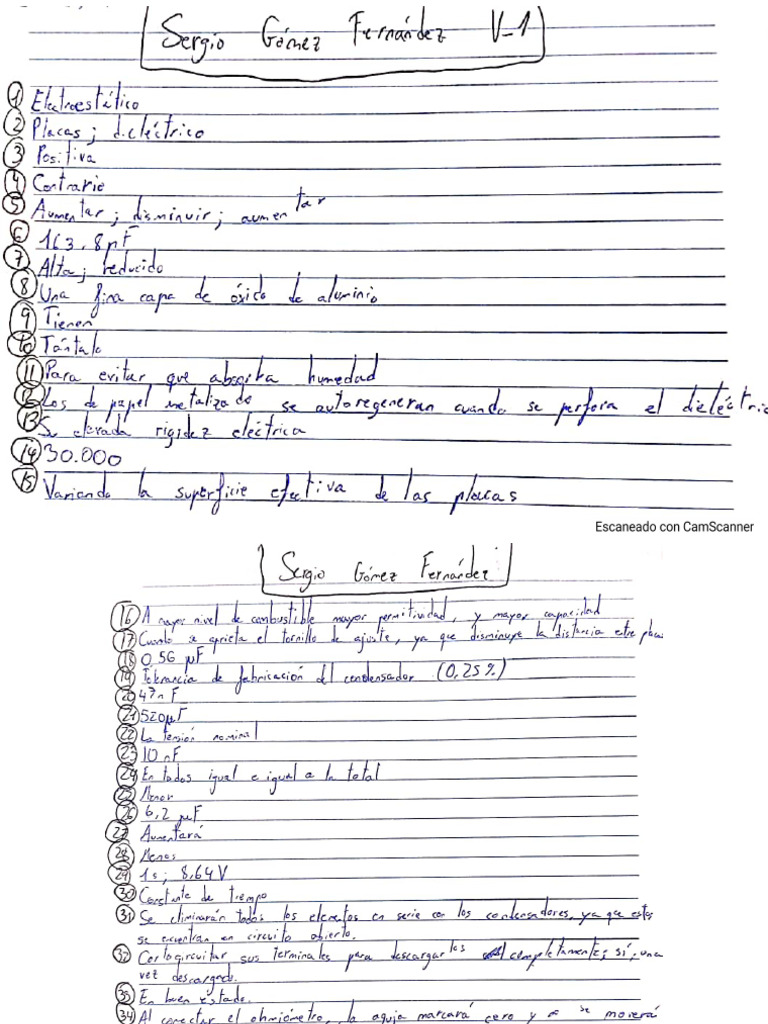 Sergio Gómez Fernández V-1
1 Electroestático
2 Placas; dieléctrico
3 Positiva
4 Contrario
5 Aumentar; disminuir; aumentar
6 163,8 pF
7 Alta; reducido
8 Una fina capa de óxido de aluminio
9 Tienen
10 Tántalo
11 Para evitar que absorba humedad
12 Los de papel metalizado se autoregeneran cuando se perfora el dieléctric
13 Su elevada rigidez eléctrica
14 30.000
15 Variando la superficie efectiva de las placas
Escaneado con CamScanner
Sergio Gómez Fernández
16 A mayor nivel de combustible mayor permitividad, y mayor capacidad
17 Cuando se aprieta el tornillo de ajuste, ya que disminuye la distancia entre placas
18 0,56 µF
19 Tolerancia de fabricación del condensador (0,25%)
20 47 nF
21 520µF
22 La tensión nominal
23 10 nF
24 En todos igual e igual a la total
25 Menor
26 6,2 µF
27 Aumentará
28 Menos
29 1s; 8,64V
30 Constante de tiempo
31 Se eliminarán todos los elementos en serie con los condensadores, ya que estos
se encuentran en circuito abierto.
32 Cortocircuitar sus terminales para descargarlos completamente; sí, una
vez descargado.
33 En buen estado.
34 Al conectar el ohmiómetro, la aguja marcará cero y se moverá